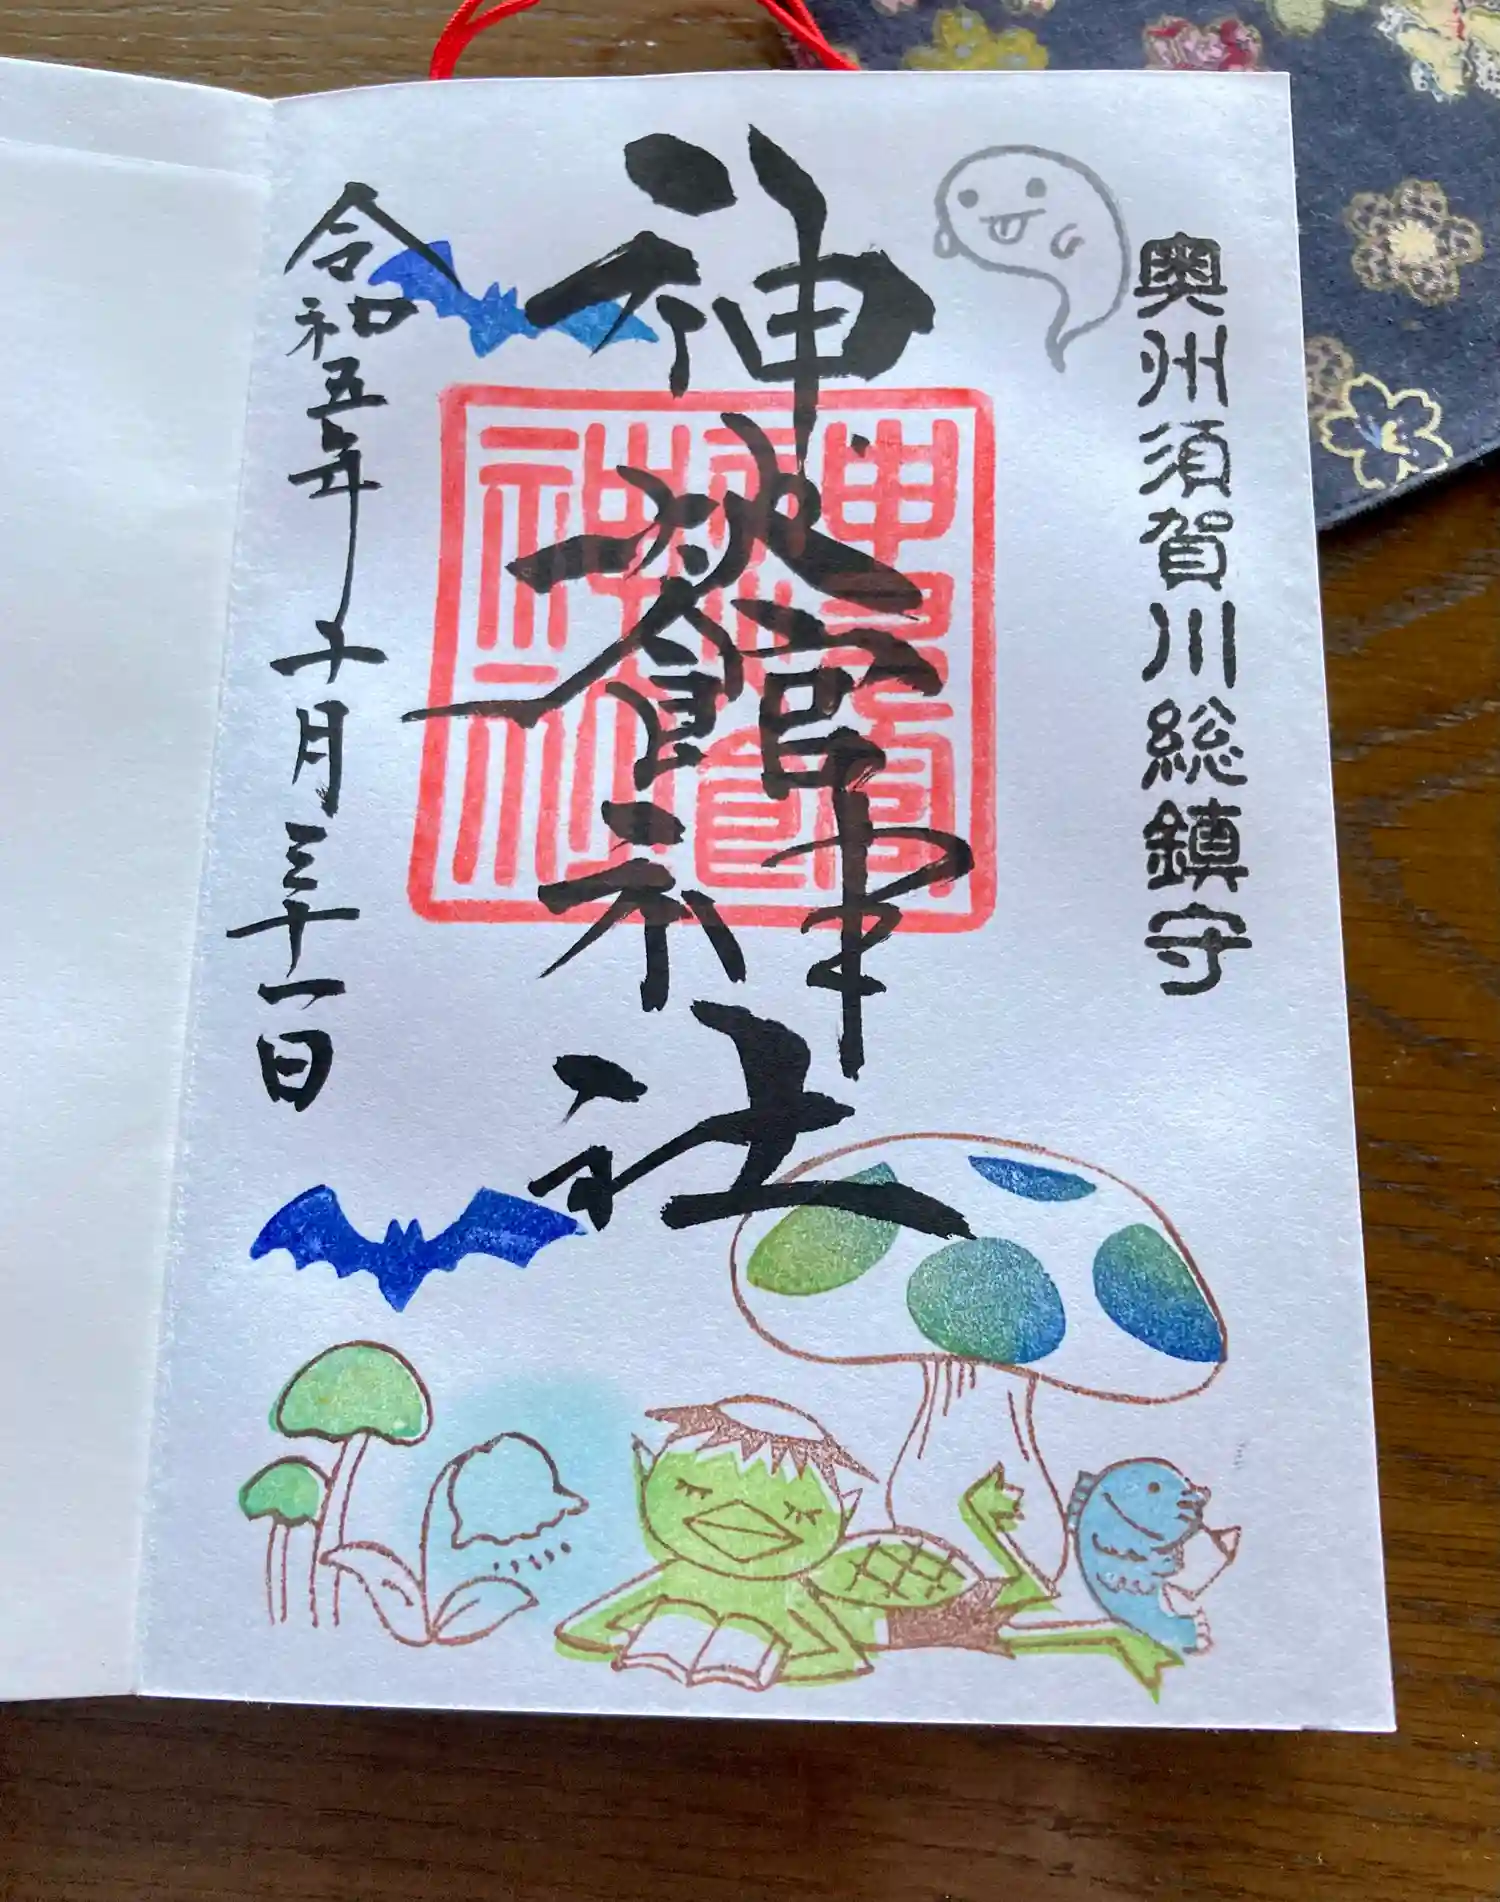 奥州須賀川総鎮守
神炊館神社
神炊館
神社
令和五年十月三十一日